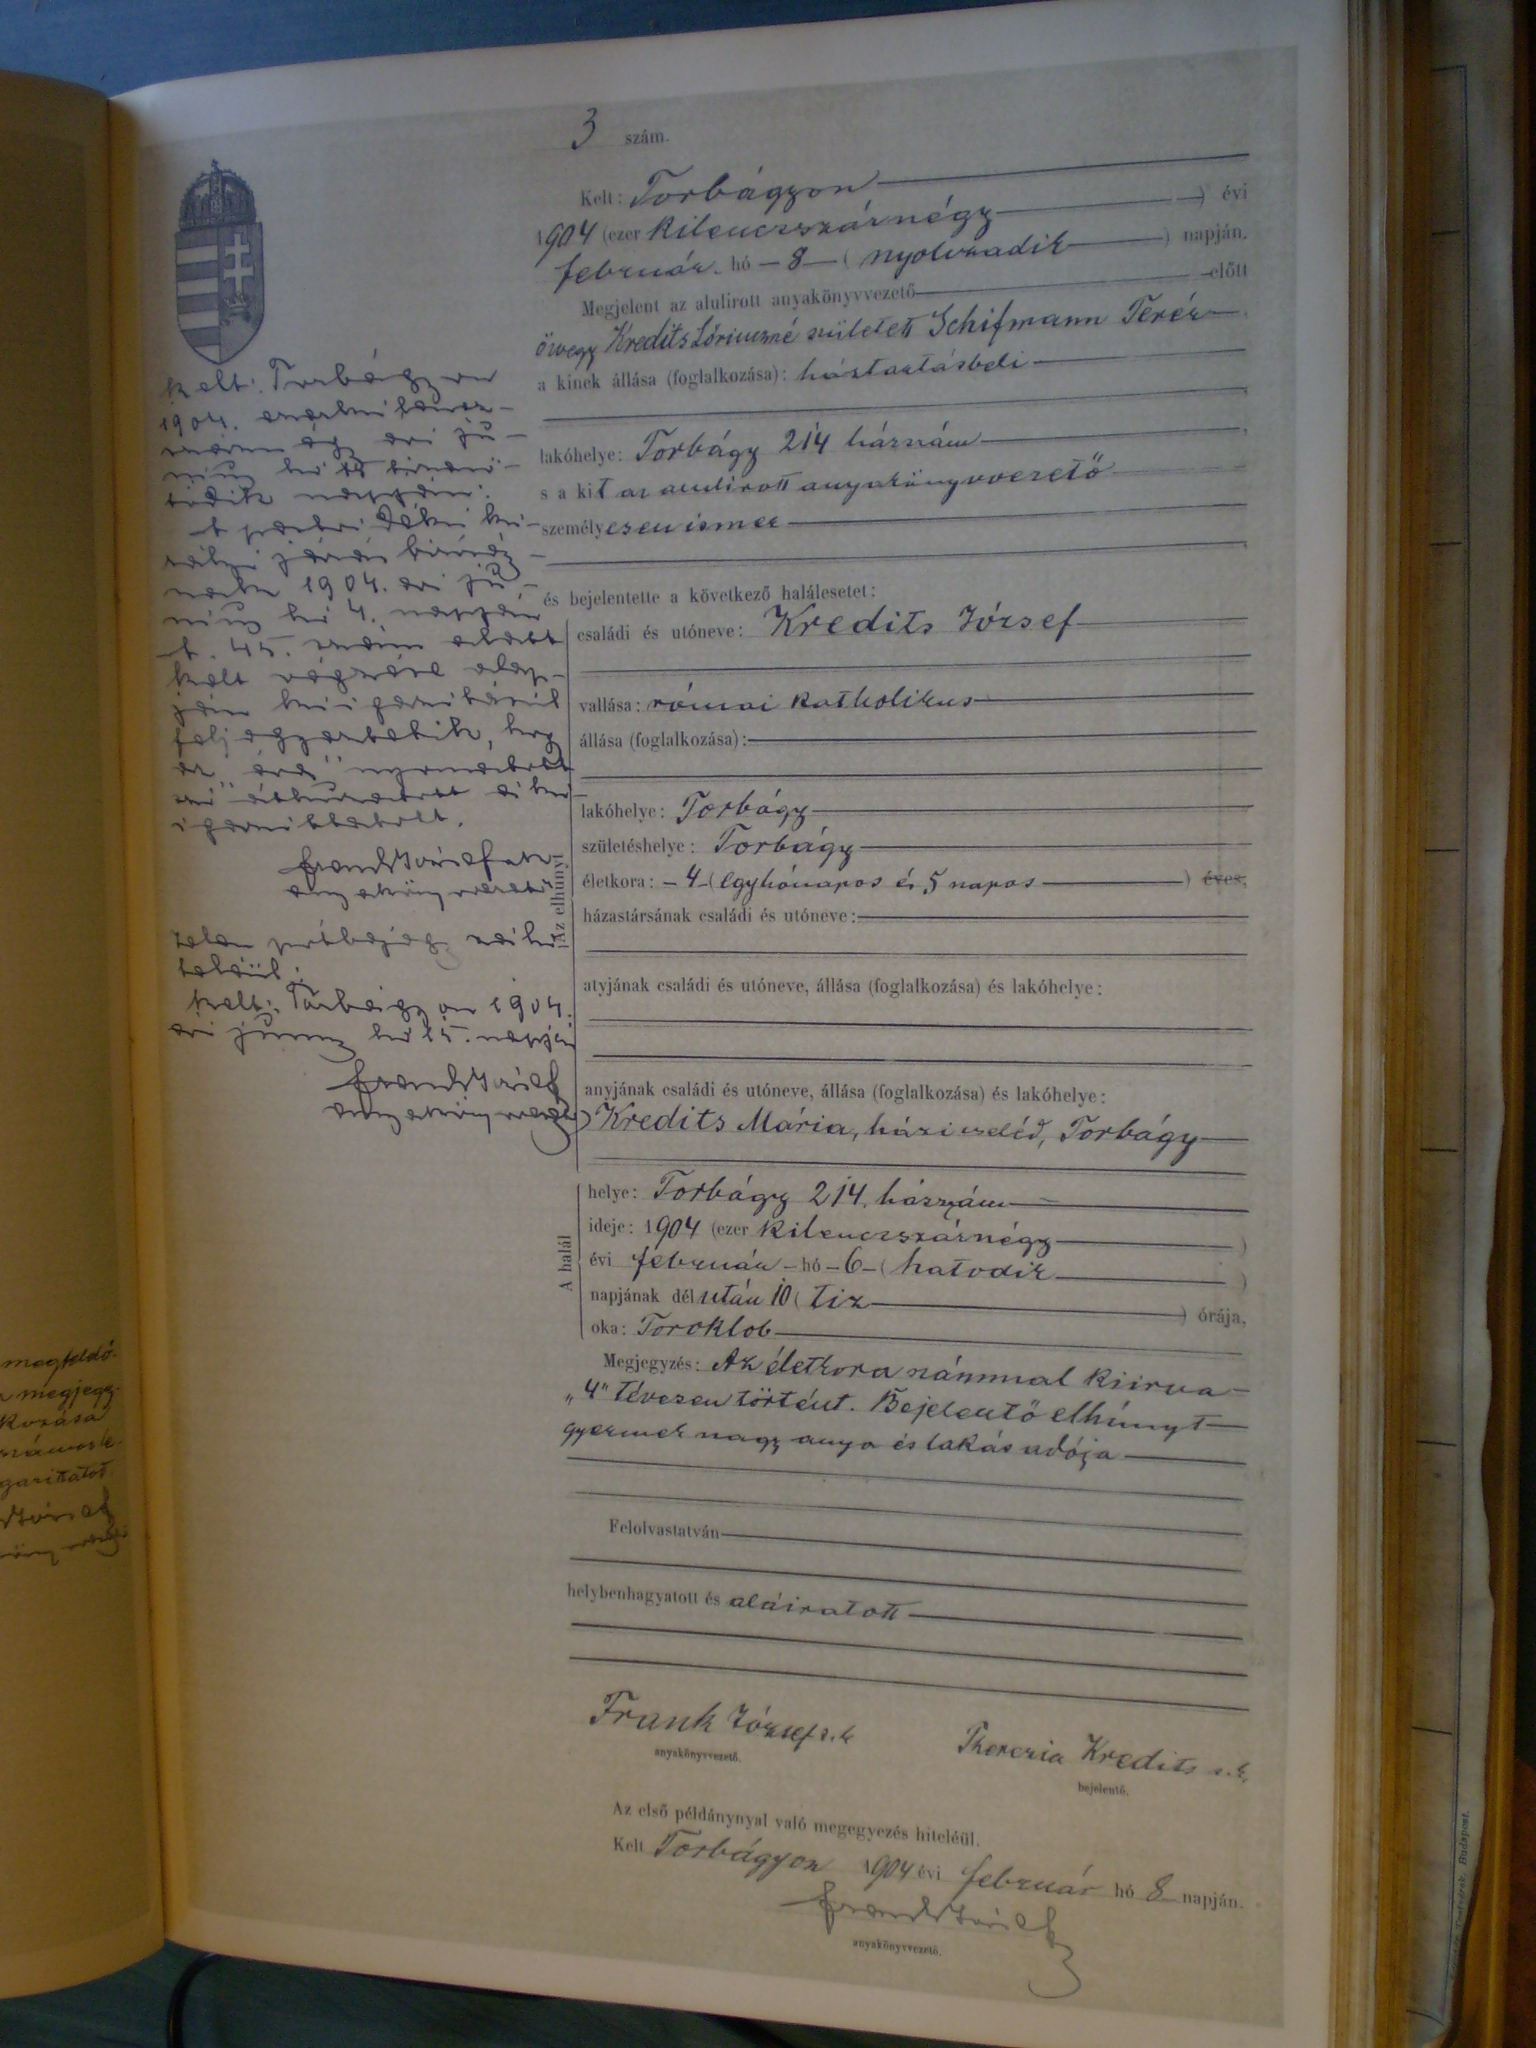 3 szám.
Kelt: Torbágyon
1904 (ezer kilencszáznégy ) évi
február hó - 8 - ( nyolczadik ) napján.
Megjelent az alulirott anyakönyvvezető előtt
özvegy Kredits Lőrinczné született Schifmann Teréz
a kinek állása (foglalkozása): háztartásbeli
lakóhelye: Torbágy 214 házszám
s a kit az alulirott anyakönyvvezető
személyesen ismer
és bejelentette a következő halálesetet:
Az elhúnyt
családi és utóneve: Kredits József
vallása: római katholikus
állása (foglalkozása):
lakóhelye: Torbágy
születéshelye: Torbágy
életkora: - 4 - ( egyhónapos és 5 napos ) éves,
házastársának családi és utóneve:
atyjának családi és utóneve, állása (foglalkozása) és lakóhelye:
anyjának családi és utóneve, állása (foglalkozása) és lakóhelye:
Kredits Mária, házi cseléd, Torbágy
A halál
helye: Torbágy 214. házszám
ideje: 1904 (ezer kilencszáznégy )
évi február - hó - 6 - ( hatodik )
napjának dél után 10 ( tiz ) órája,
oka: Toroklob
Megjegyzés: Az életkora számmal kiirva
"4" tévesen történt. Bejelentő elhúnyt
gyermek nagy anya és lakás adója
Felolvastatván
helybenhagyatott és aláiratott
Frank József s. k.
anyakönyvvezető.
Therezia Kredits s. k.
bejelentő.
Az első példánynyal való megegyezés hiteléül.
Kelt Torbágyon 1904 évi február hó 8 napján.
Frank József
anyakönyvvezető.
Kelt: Torbágyon
1904. ezerkilencz-
száznégy évi jú-
nius hó
napján.
járás
1904. évi jú-
nius hó 4. napján
B. 45. szám alatt
kelt végzése alap-
ján kiigazitásúl
feljegyeztetik, hogy
az "
kiigazittatott.
Frank József
anyakönyvvezető
hi-
teléül.
Kelt: Torbágyon 1904.
évi június hó 15. napján
Frank József
anyakönyvvezető
megjegy-